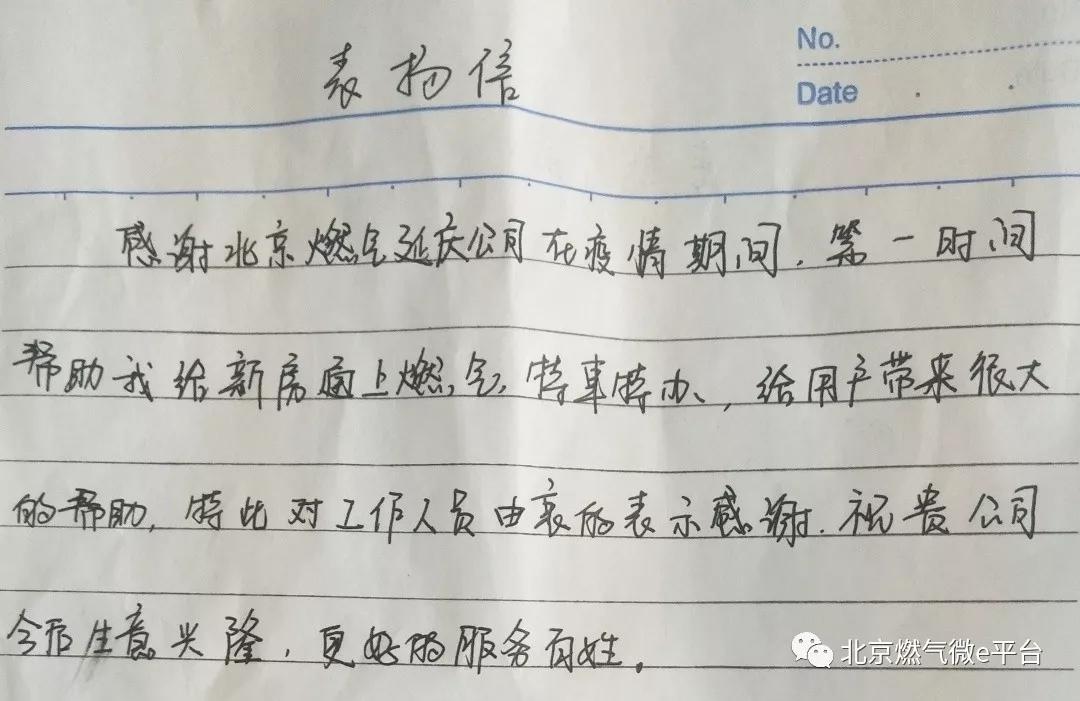 表扬信
No.
Date
感谢北京燃气延庆公司在疫情期间，第一时间
帮助我给新房通上燃气，特事特办，给用户带来很大
的帮助，特此对工作人员由衷的表示感谢.祝贵公司
今后生意兴隆，更好的服务百姓。
北京燃气微e平台